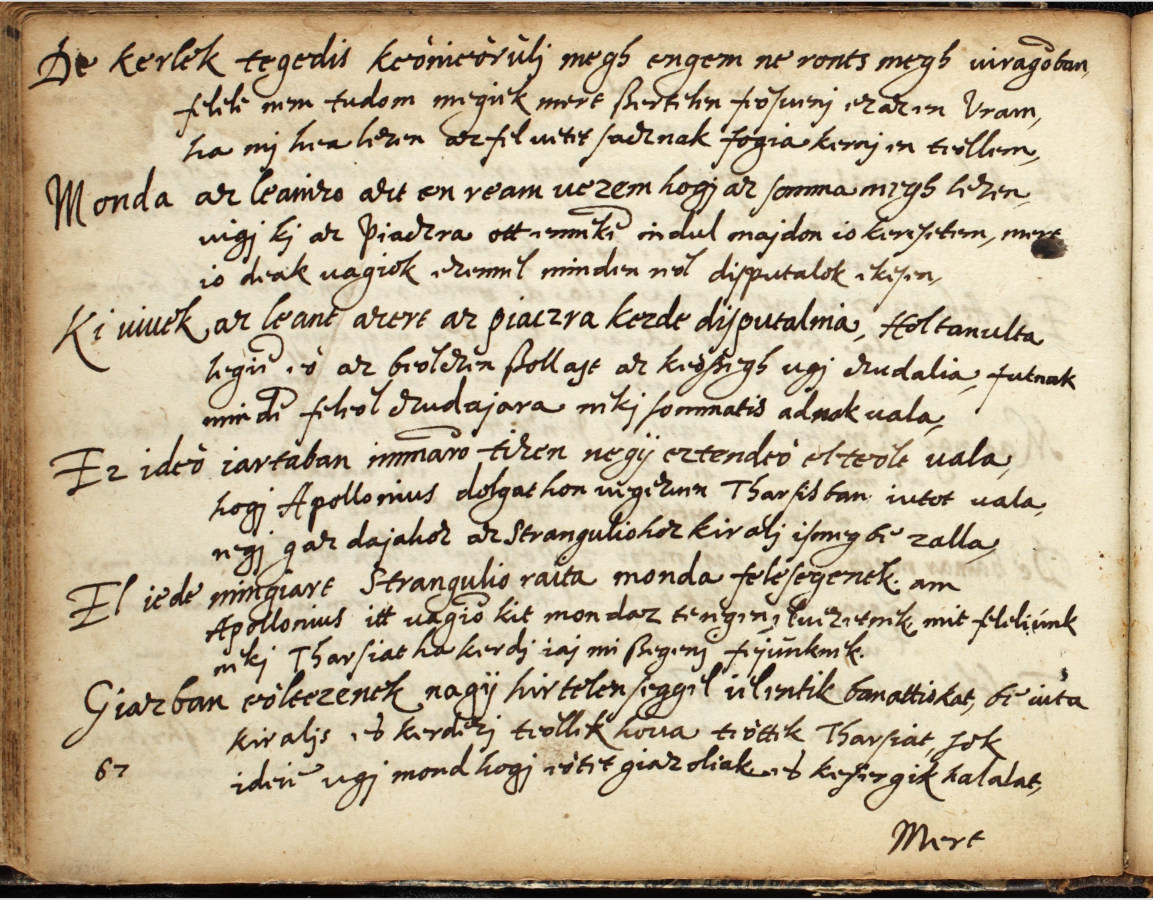 De kerlek tegedis keonieorulj megh engem ne ronts megh viragoban,
felele nem tudom megiek mert ßertelen fosuenj ez az en Vram,
ha mj hea lezen az fel vetet sacznak fogia kernj en teollem,
Monda az leanizo azt en ream vezem hogj az somma megh lezen,
vigj kj az Piaczra ott ennikem indul majdon io keresetem, mert
io deak vagiok ezennel minden nel disputalok ekesen,
Ki vivek az leant azert az piaczra kezde disputalnia, Hol tanulta
legien eo az beolczen ßollast az keossegh ugj czudalia, futnak
minden feleol czudajara nekj sommatis adnak vala,
Ez ideo iartaban immaro tizen negij eztendeo el teole vala,
hogj Apollonius dolgat hon vegezven Tharsisban iutot vala,
negj az dajahoz az Stranguliohoz Kiralj ismeg be zalla,
El iede mingiart Strangulio raita monda felesegenek. am
Apollonius itt vagio kit mondaz tengeren elvezetnek mit feleliunk
nekj Tharsiat ha kerdj iaj mi ßegenj fejunknek.
Giazban eolteozenek nagij hirtelenseggel ielentik banattiokat, be iuta
kiralis es kerdezj teollek hova teottek Tharsiat, sok
ideie ugj mond hogj eotet giazoliak es kesergik halalat,
67
Mert